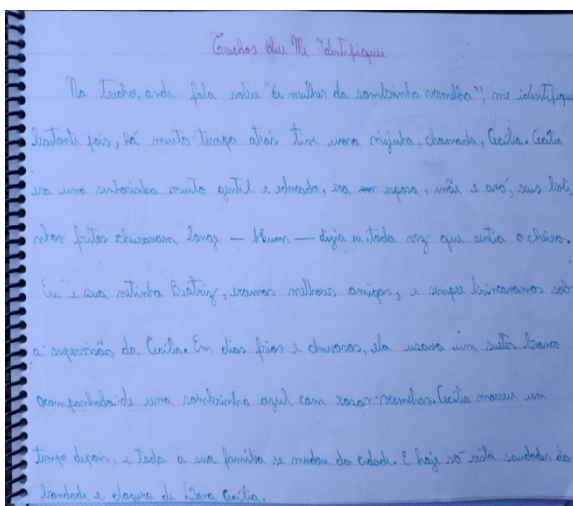 Trechos Que Me Identifiquei
No trecho, onde fala sobre "a mulher da sombrinha vermelha", me identifiquei
bastant pois, há muito tempo atrás tive uma vizinha, chamada, Cecília. Cecília
era uma senhorinha muito gentil e educada, era esposa, mãe e avó, seus boli
nhos fritos cheiravam longe — Humm — dizia eu, toda vez que sentia o cheiro.
Eu e sua netinha Beatriz, eramos melhores amigas, e sempre brincavamos sob
a supervisão da Cecília. Em dias frios e chuvosos, ela usava um sueter branco
acompanhada-de uma sombrinha azul com rosas vermelhas. Cecília morreu um
tempo depois, e toda a sua família se mudou da cidade. E hoje só resta saudades da
bondade e doçura de Dona Cecília.